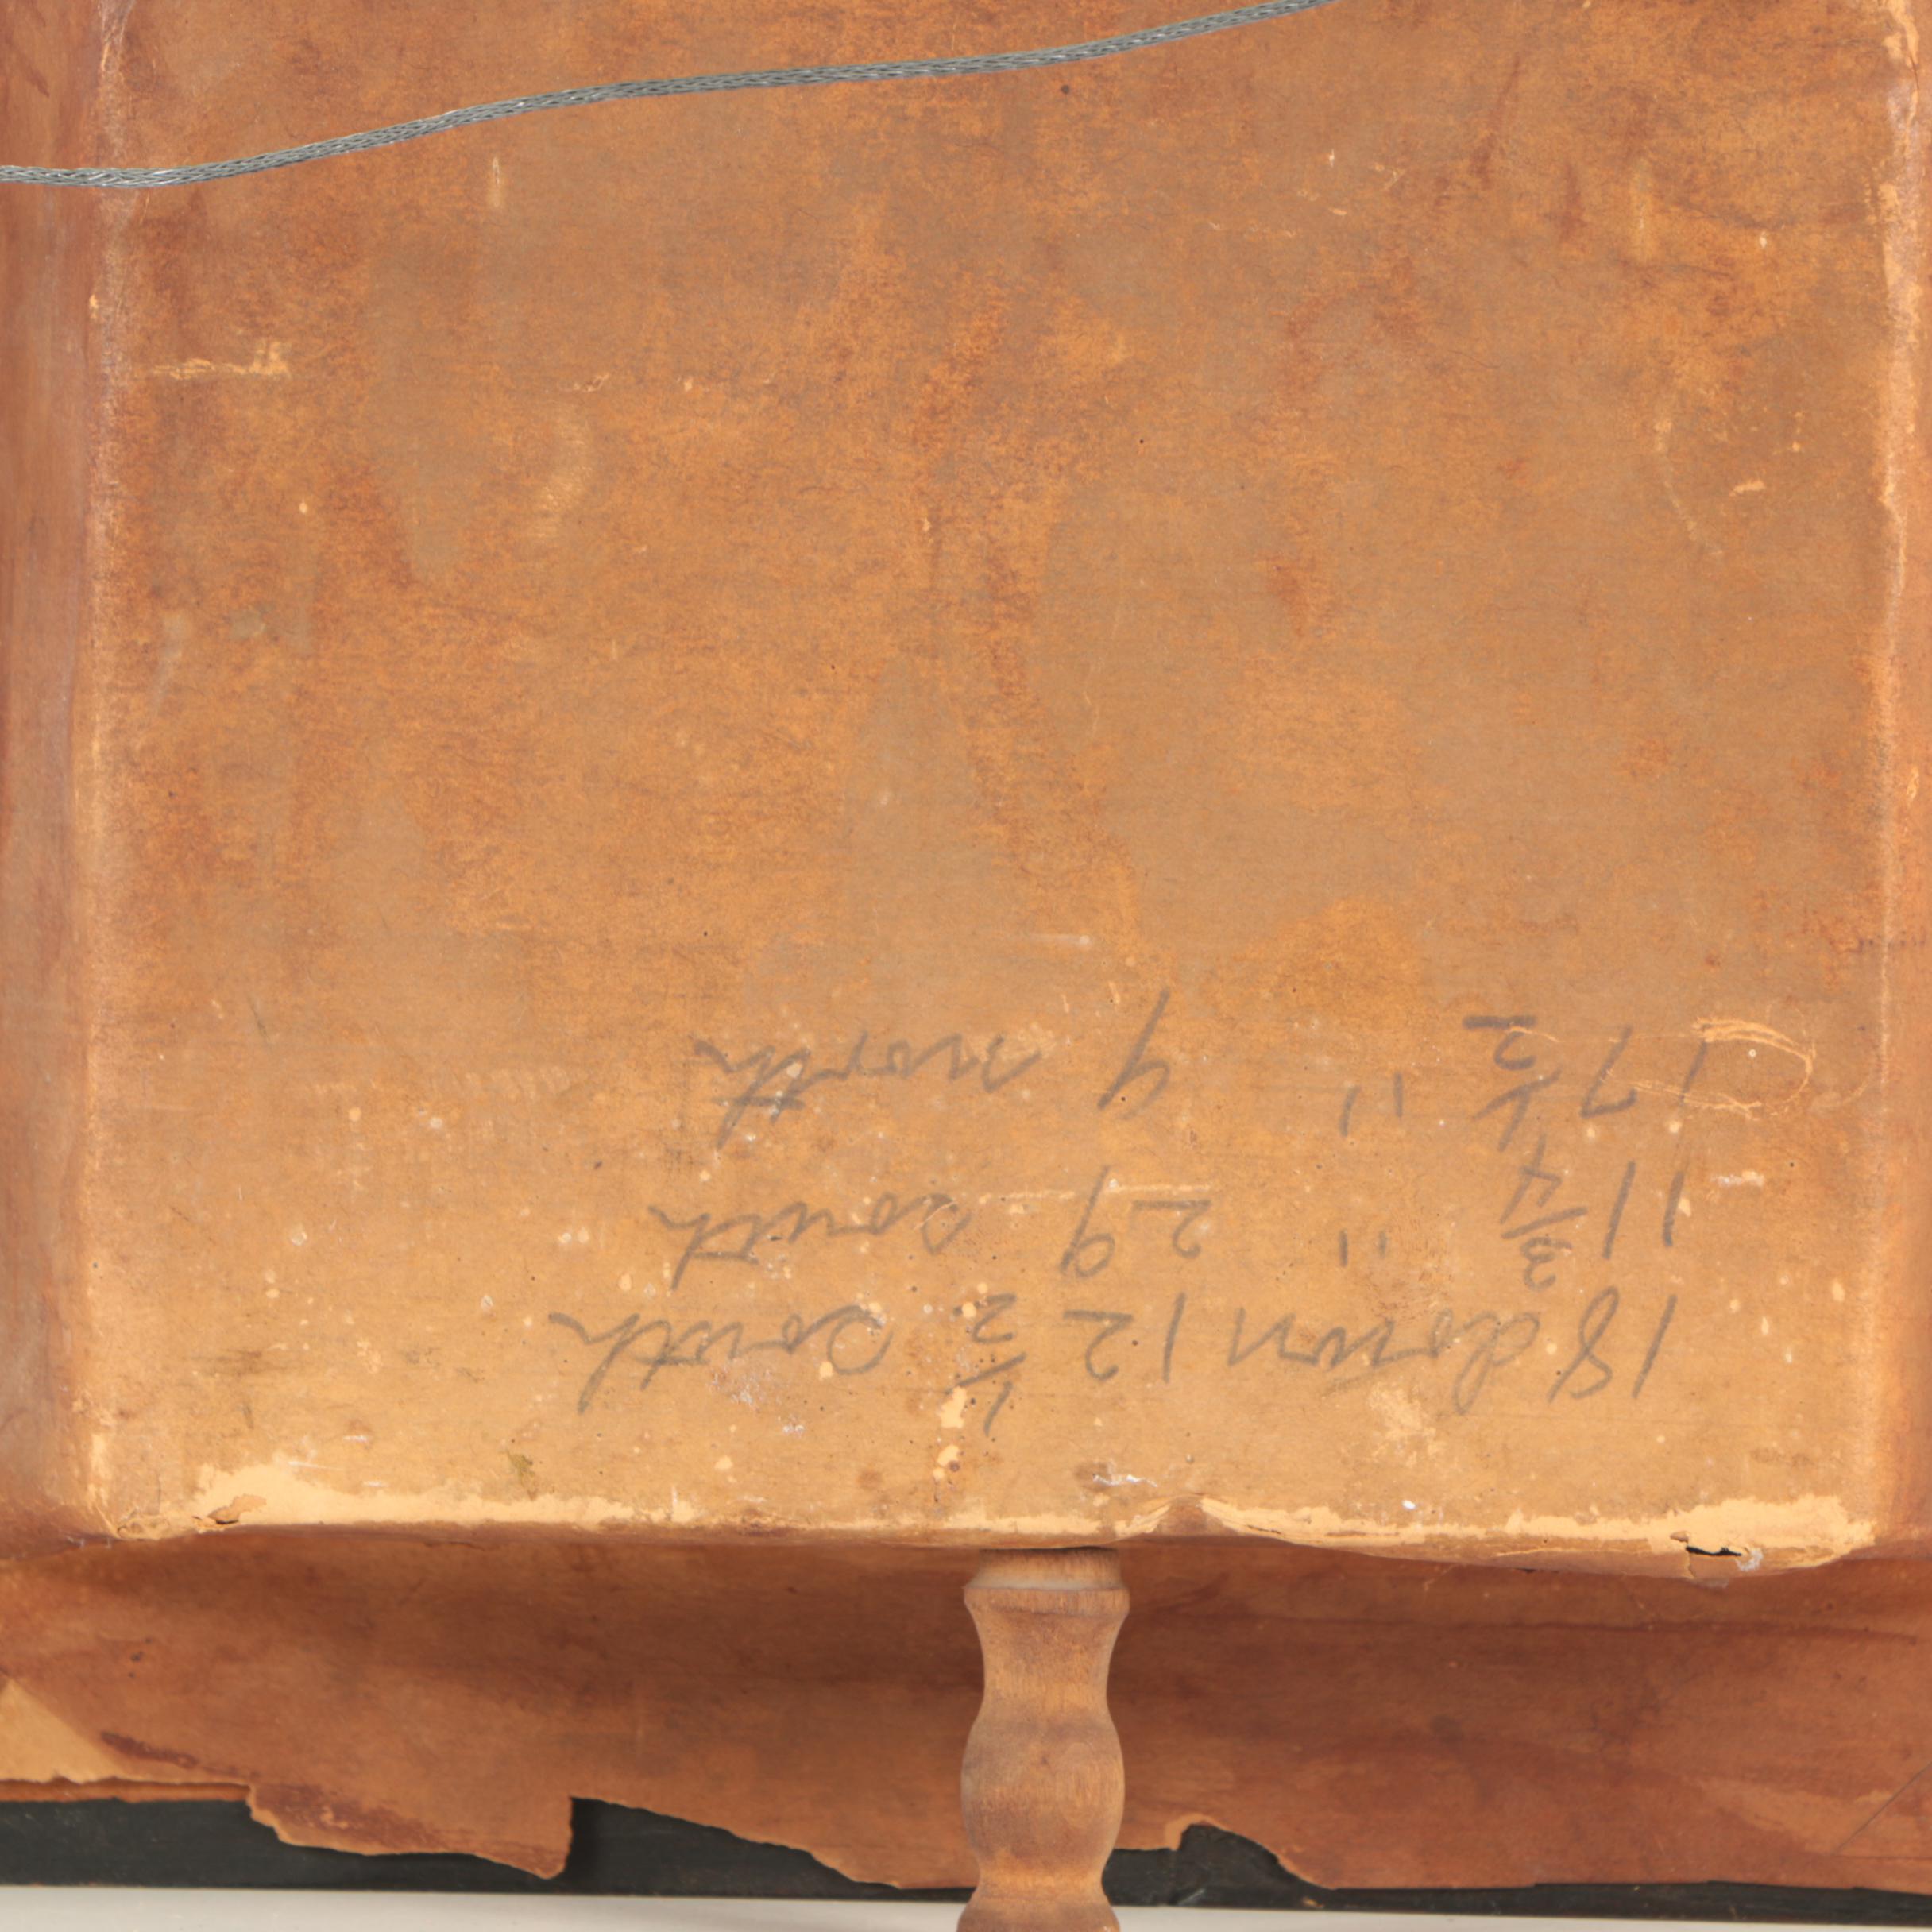 18 down 12 1/2 south
11 3/4 " 29 south
17 1/2 " 9 north